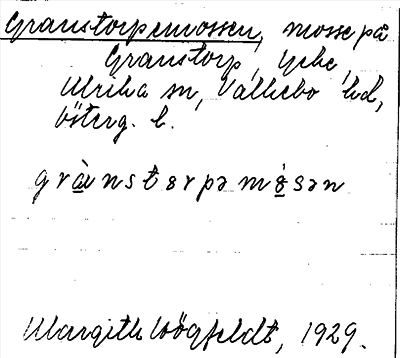 Granstorpemossen, mosse på
Granstorp,
Ulrika sn, Valkebo hd,
Österg. l.
grànstərpəmòsən
Margith Högfeldt, 1929.